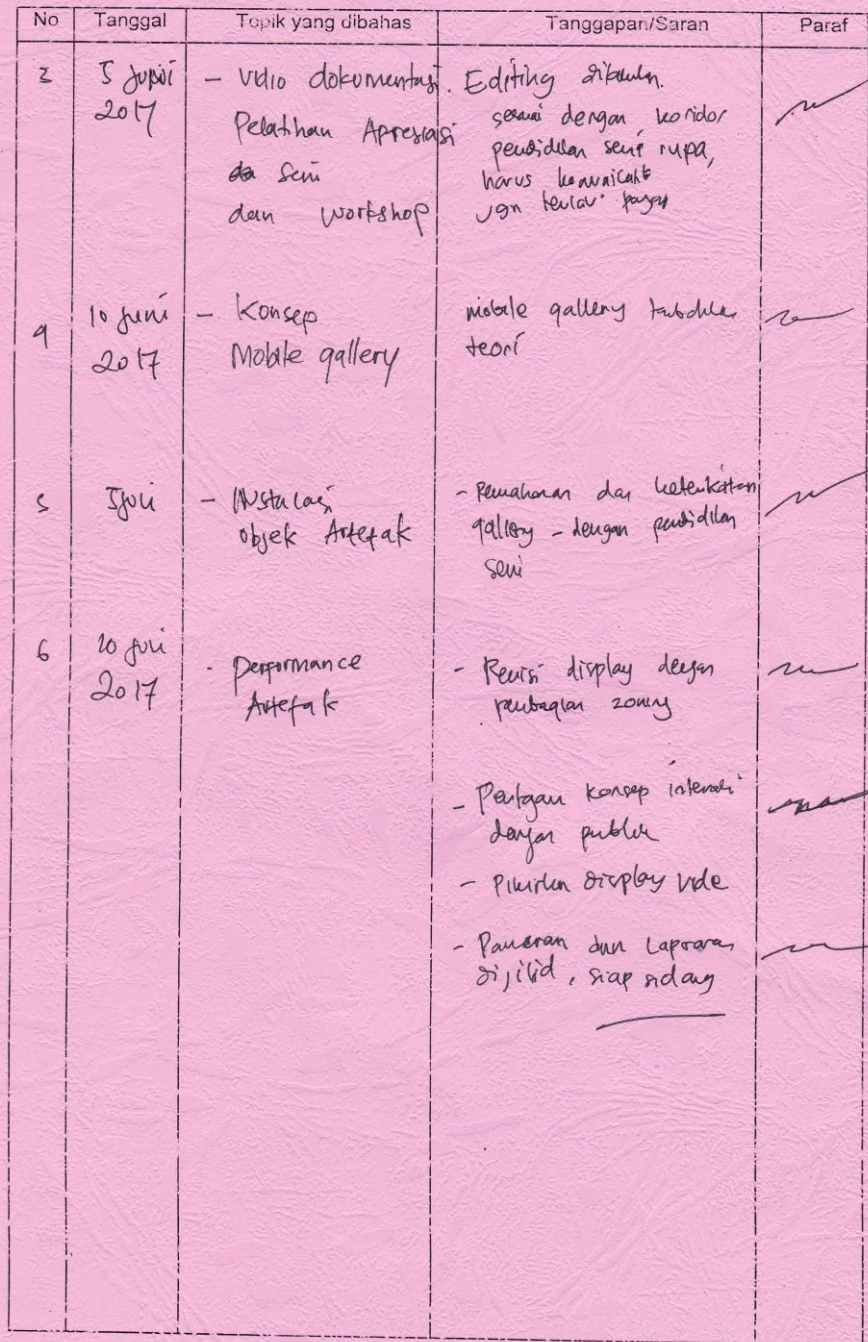 No Tanggal Topik yang dibahas Tanggapan/Saran Paraf
3 5 Juni - Vidio dokumentasi. Editing
2017 Pelatihan Apresiasi
Seni
dan Workshop
sesuai dengan koridor
pendidikan seni rupa,
harus komunikatif
jgn terlalu
4 10 Juni - Konsep
2017 Mobile gallery
mobile gallery
teori
5 5 Juli - Instalasi
objek Artefak
- Pemahaman dan keterkaitan
gallery - dengan pendidikan
seni
6 20 Juli - performance
2017 Artefak
- Revisi display dengan
pembagian zoning
- konsep interaksi
dengan publik
- Pikirkan display vide
- Pameran dan Laporan
dijilid, siap sidang